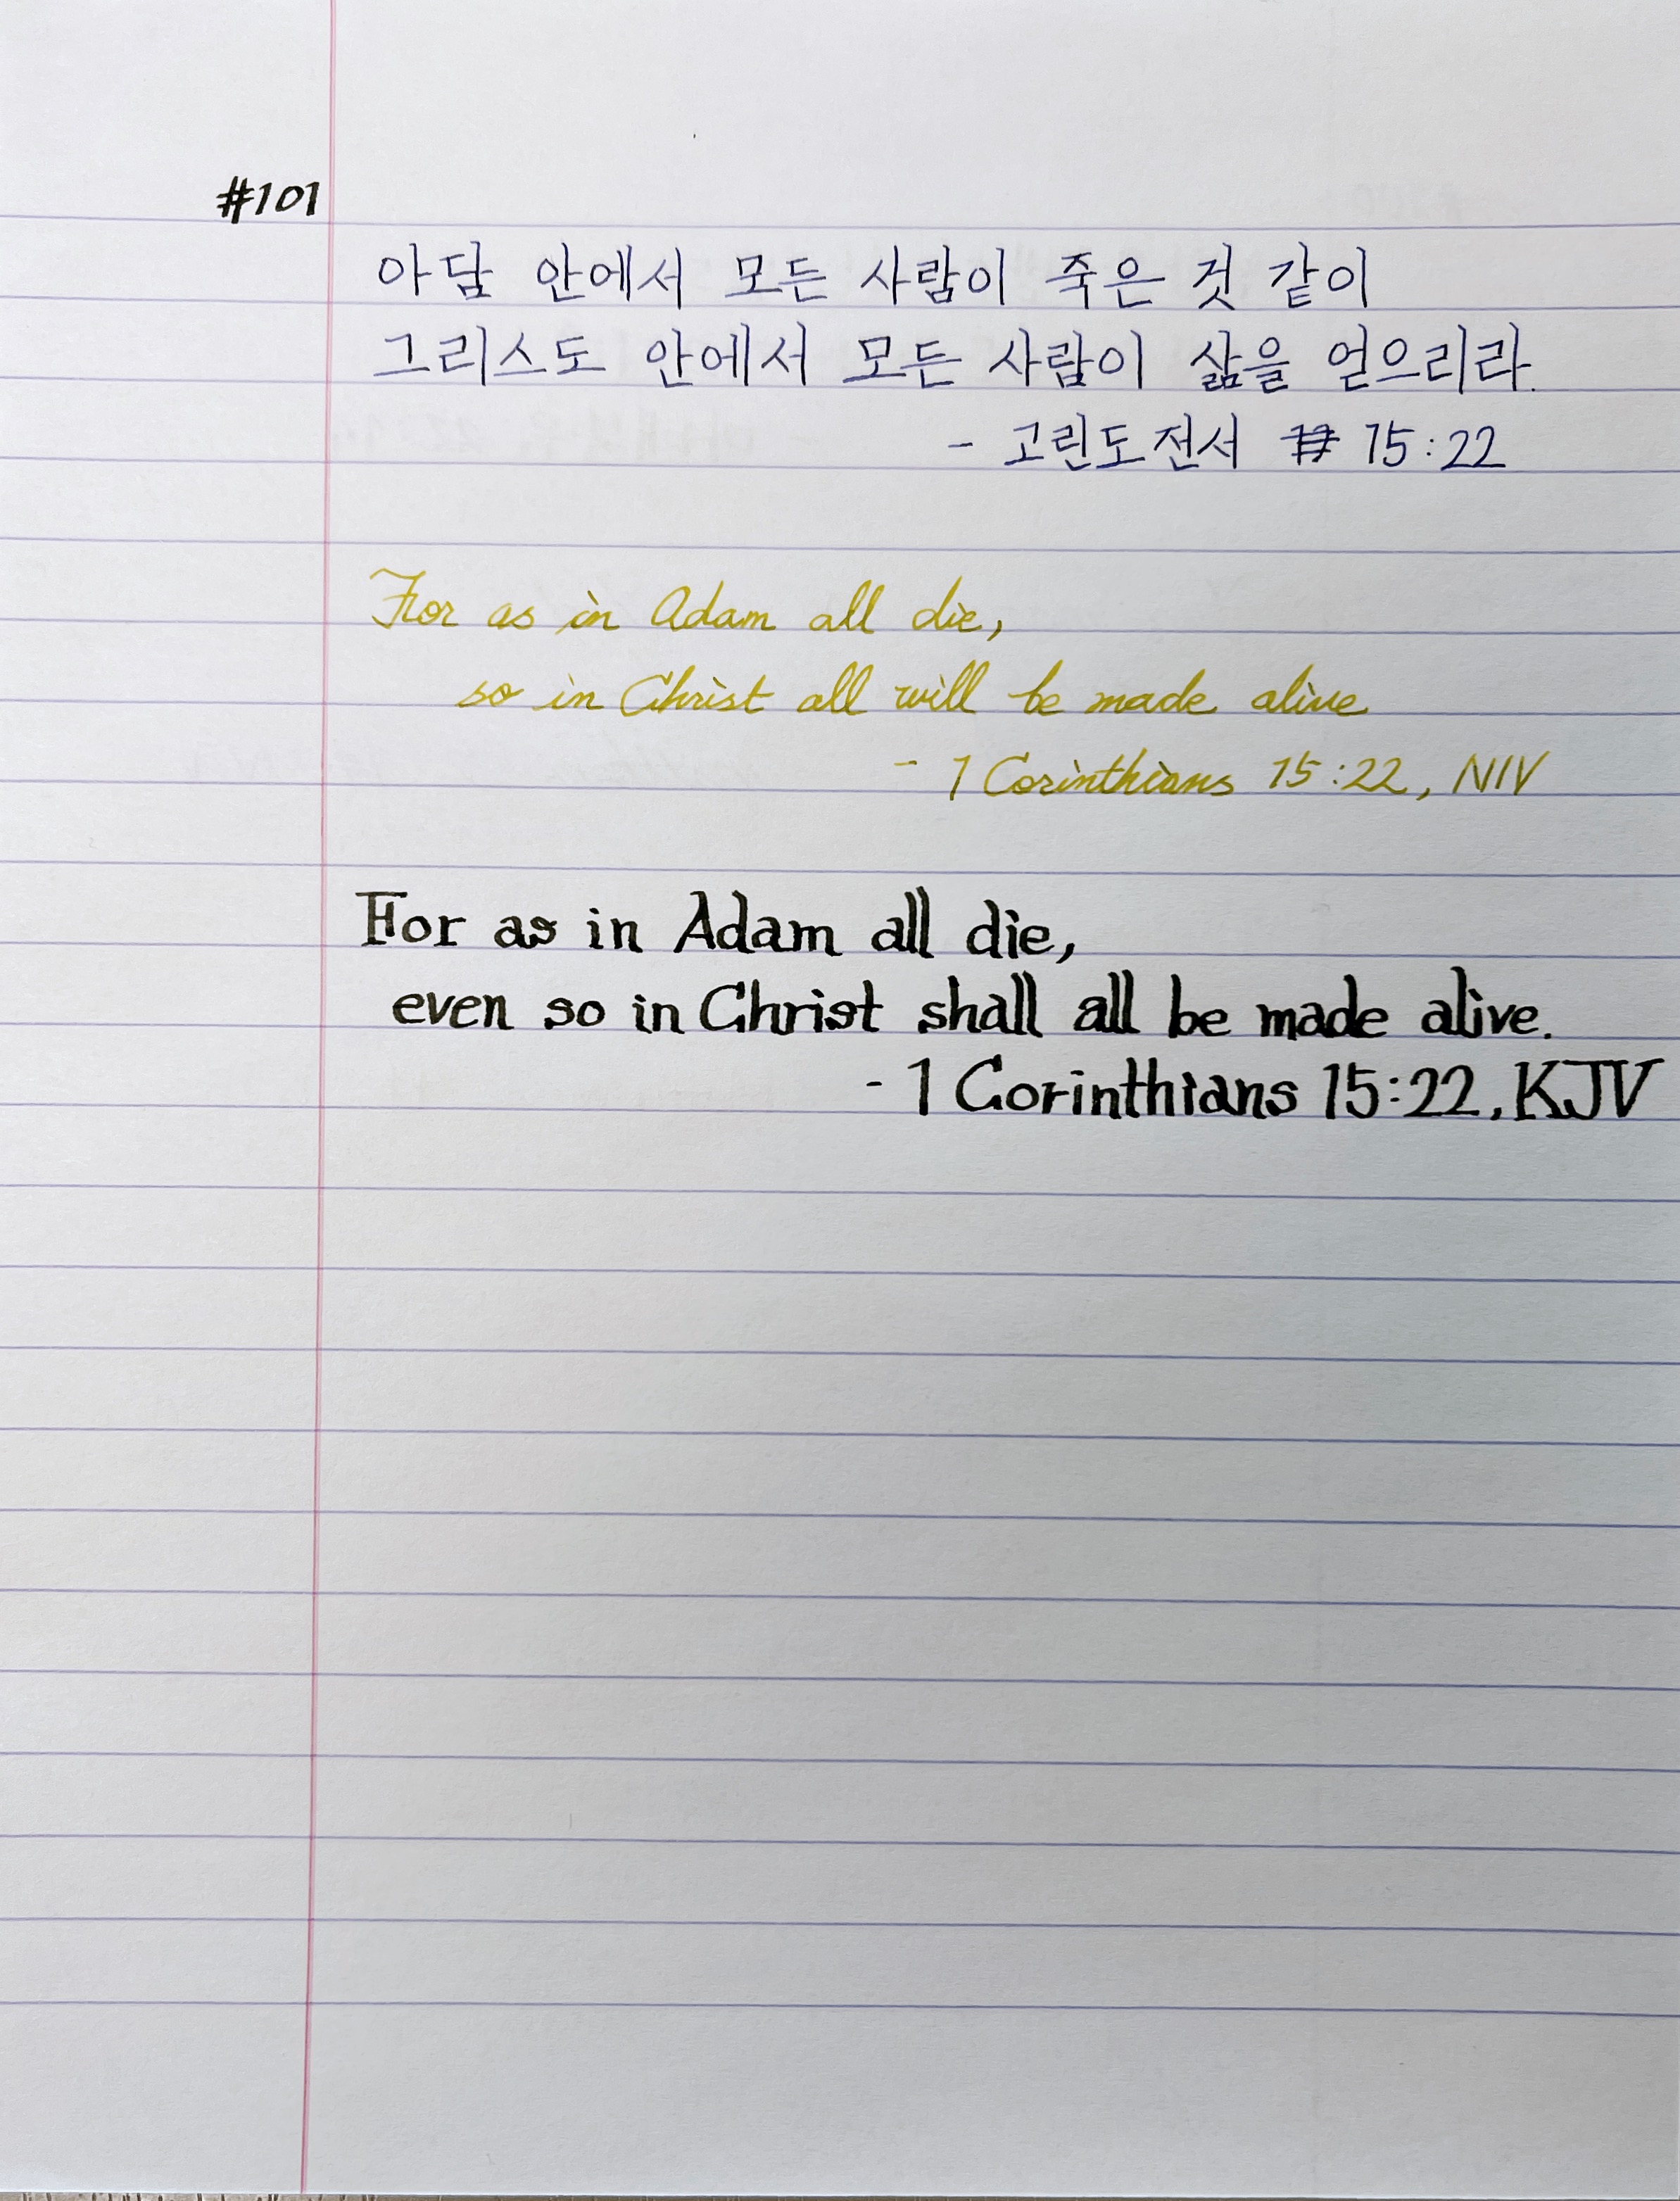 #101
아담 안에서 모든 사람이 죽은 것 같이
그리스도 안에서 모든 사람이 삶을 얻으리라.
- 고린도전서 15:22
For as in Adam all die,
so in Christ all will be made alive
- 1 Corinthians 15:22, NIV
For as in Adam all die,
even so in Christ shall all be made alive.
- 1 Corinthians 15:22, KJV